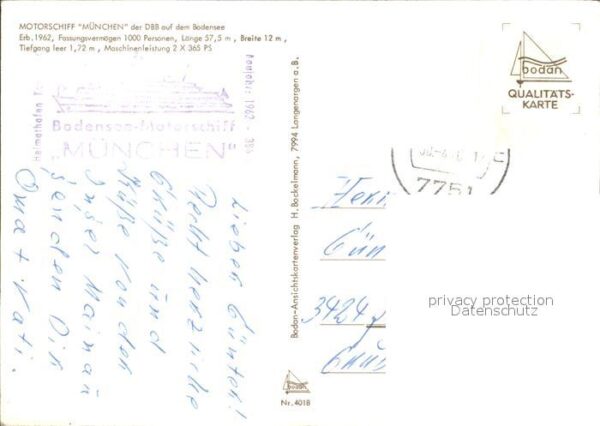 MOTORSCHIFF "MÜNCHEN" der DBB auf dem Bodensee
Erb. 1962, Fassungsvermögen 1000 Personen, Länge 57,5 m, Breite 12 m,
Tiefgang leer 1,72 m, Maschinenleistung 2 X 365 PS
Heimathafen
Baujahr: 1962
Bodensee-Motorschiff
"MÜNCHEN"
Lieber Günter!
Recht herzliche
Grüße und
Grüße von der
Insel Mainau
senden Dir
Oma + Kati.
Bodan-Ansichtskartenverlag H. Bockelmann, 7994 Langenargen a. B.
bodan
Nr. 4018
bodan
QUALITÄTS-
KARTE
7751
Herrn
Gün
3424
privacy protection
Datenschutz